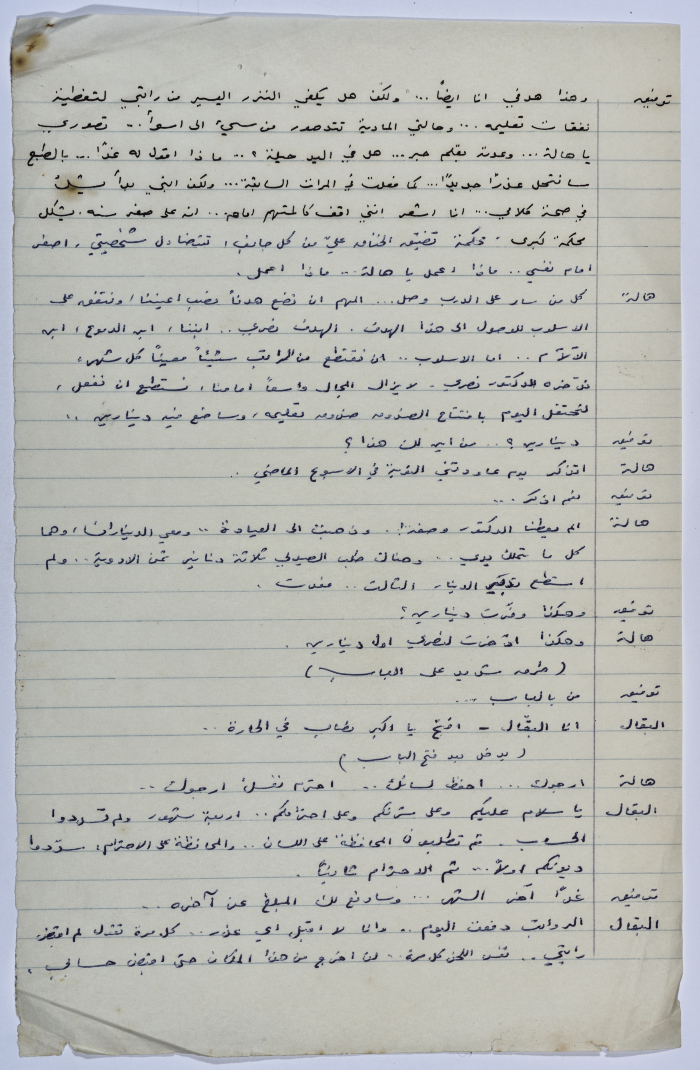 توفيق وهذا هدفي انا ايضاً ... ولكن هل يكفي النزر اليسير من راتبي لتغطية
نفقات تعليمه ... وحالتي المادية تتدهور من سيئ الى اسوأ ... تصوري
يا هالة ... وعدته بقلم حبر ... هل في اليد حيلة ؟ ... ماذا اقول له غداً ... بالطبع
سأنتحل عذراً جديداً ... كما فعلت في المرات السابقة ... ولكن ابني بدأ يشك
في صحة كلامي ... انا اشعر انني اقف كالمتهم امامه .. انه على صغر سنه يشكل
محكمة كبرى . محكمة تضيق الخناق عليّ من كل جانب ، تتضاءل شخصيتي ، اصغر
امام نفسي .. ماذا اعمل يا هالة ... ماذا اعمل .
هالة كل من سار على الدرب وصل ... المهم ان نضع هدفاً نصب اعيننا ، ونتفق على
الاسلوب للوصول الى هذا الهدف . الهدف نصري .. ابننا ، ابن الدموع ، ابن
الآلام .. اما الاسلوب .. ان نقتطع من الراتب شيئاً معيناً كل شهر ،
ندخره للدكتور نصري . لا يزال المجال واسعاً امامنا ، نستطيع ان نفعل ،
لنحتفل اليوم بافتتاح الصندوق صندوق تعليمه ، وسأضع فيه دينارين ..
توفيق دينارين ؟ .. من اين لك هذا ؟
هالة اتذكر يوم عاودتني النوبة في الاسبوع الماضي ..
توفيق نعم اذكر ...
هالة الم يعطنا الدكتور وصفة ! . وذهبت الى العيادة .. ومعي الديناران ، وهما
كل ما تملك يدي .. وهناك طلب الصيدلي ثلاثة دنانير ثمن الادوية .. ولم
استطع الدينار الثالث .. فعدت .
توفيق وهكذا وفّرت دينارين ؟
هالة وهكذا ادخرت لنصري اول دينارين .
( طرق شديد على الباب )
توفيق من بالباب ...
البقال انا البقّال - افتح يا اكبر نصاب في الحارة ..
( يدخل بعد فتح الباب )
هالة ارجوك ... احفظ لسانك .. احترم نفسك ارجوك ..
البقال يا سلام عليكم وعلى شرفكم وعلى احترامكم .. اربعة شهور ولم تسددوا
الحساب . ثم تطلبون المحافظة على اللسان .. والمحافظة على الاحترام ، سددوا
ديونكم اولاً ... ثم الاحترام ثانياً .
توفيق غداً آخر الشهر ... وسأدفع لك المبلغ عن آخره ..
البقال الرواتب دفعت اليوم .. وانا لا اقبل اي عذر .. كل مرة تقول لم اقبض
راتبي .. نفس اللحن كل مرة .. لن اخرج من هذا المكان حتى اقبض حسابي .